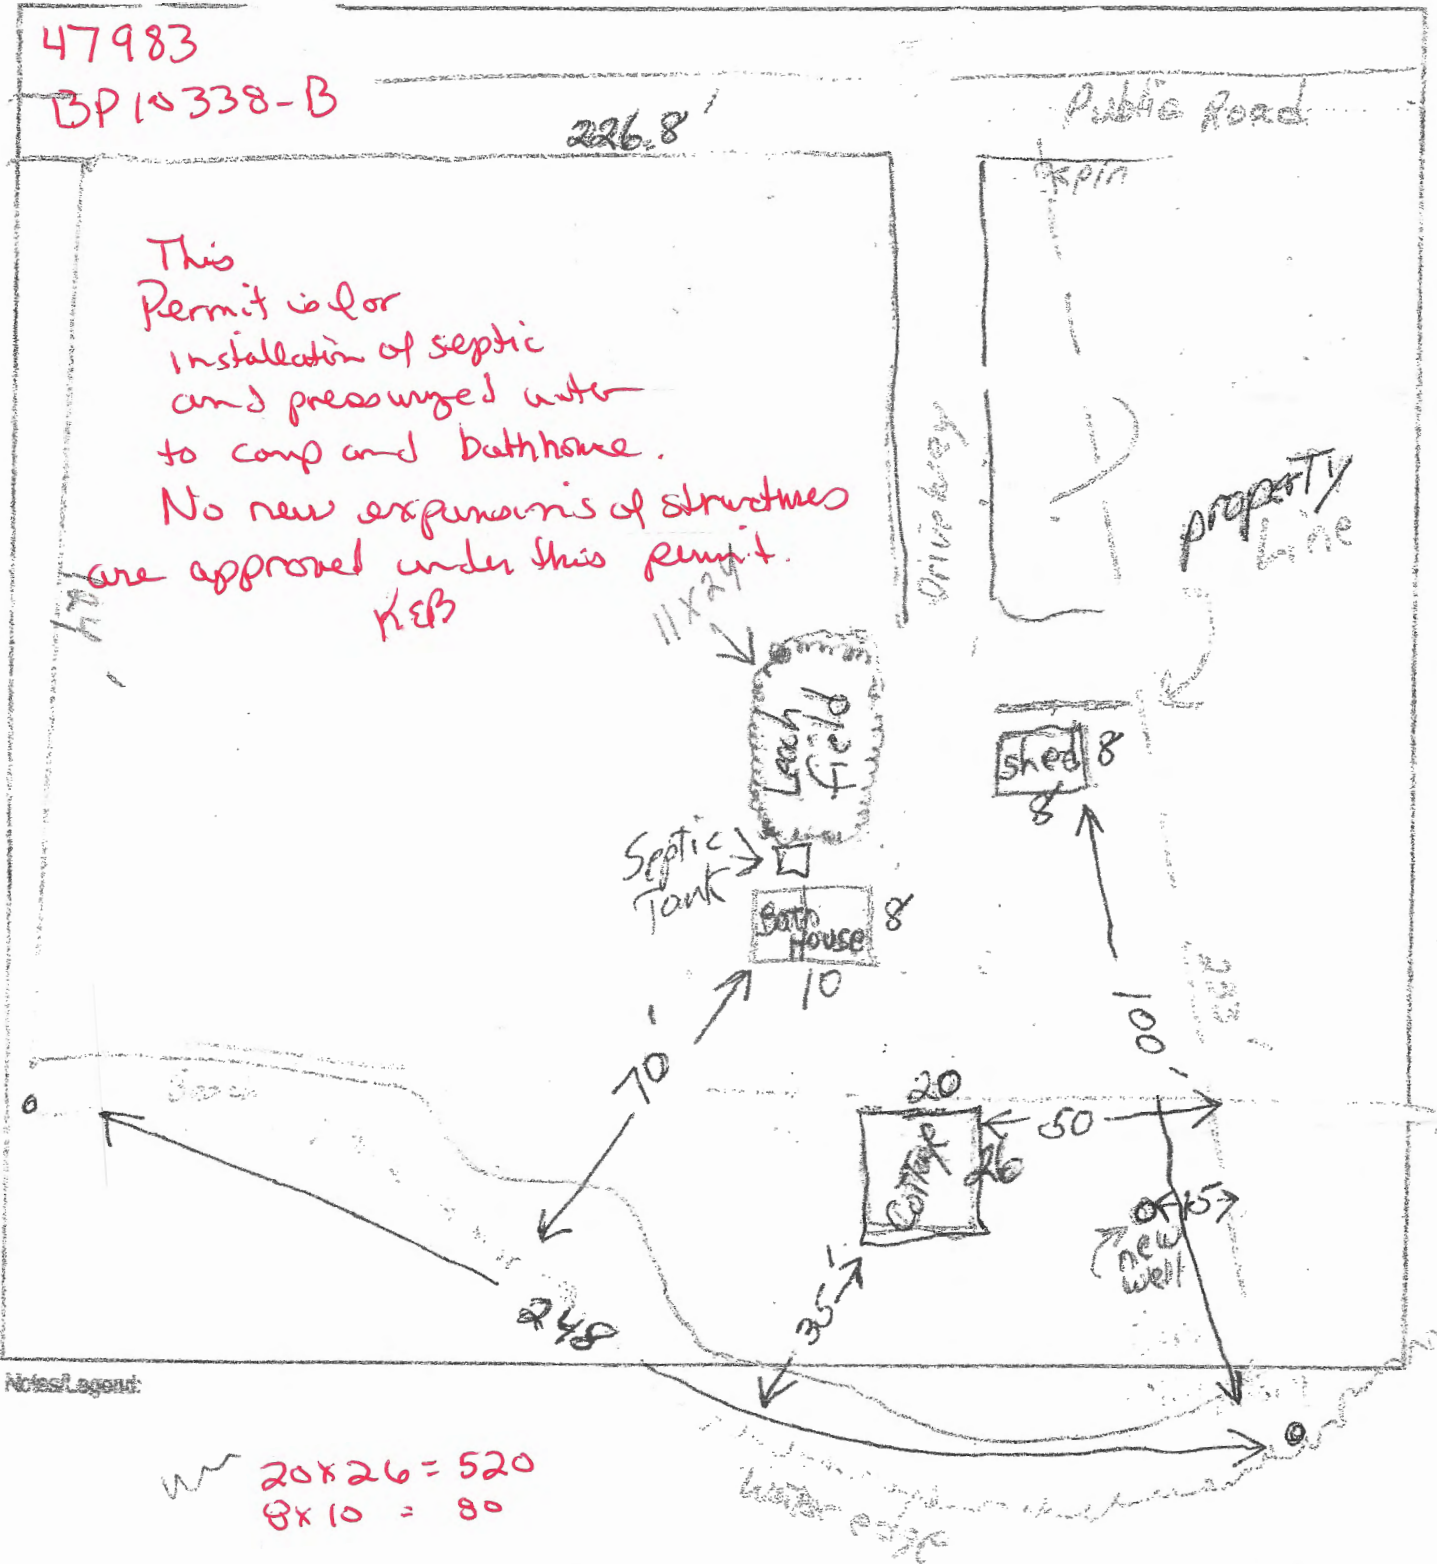 47983
BP10338-B
Public Road
226.8'
pin
This
Permit is for
installation of septic
and pressurized water
to camp and bathhouse.
No new expansions of structures
are approved under this permit.
KEB
Driveway
property
Line
11 x 24
Leach
field
shed
8
8
Septic
Tank
Bath
House
8
10
70'
100'
233
Beach
20
Cottage
26
50
15
new
well
35'
248
Notes/Legend:
20x26 = 520
8x10 = 80
water edge